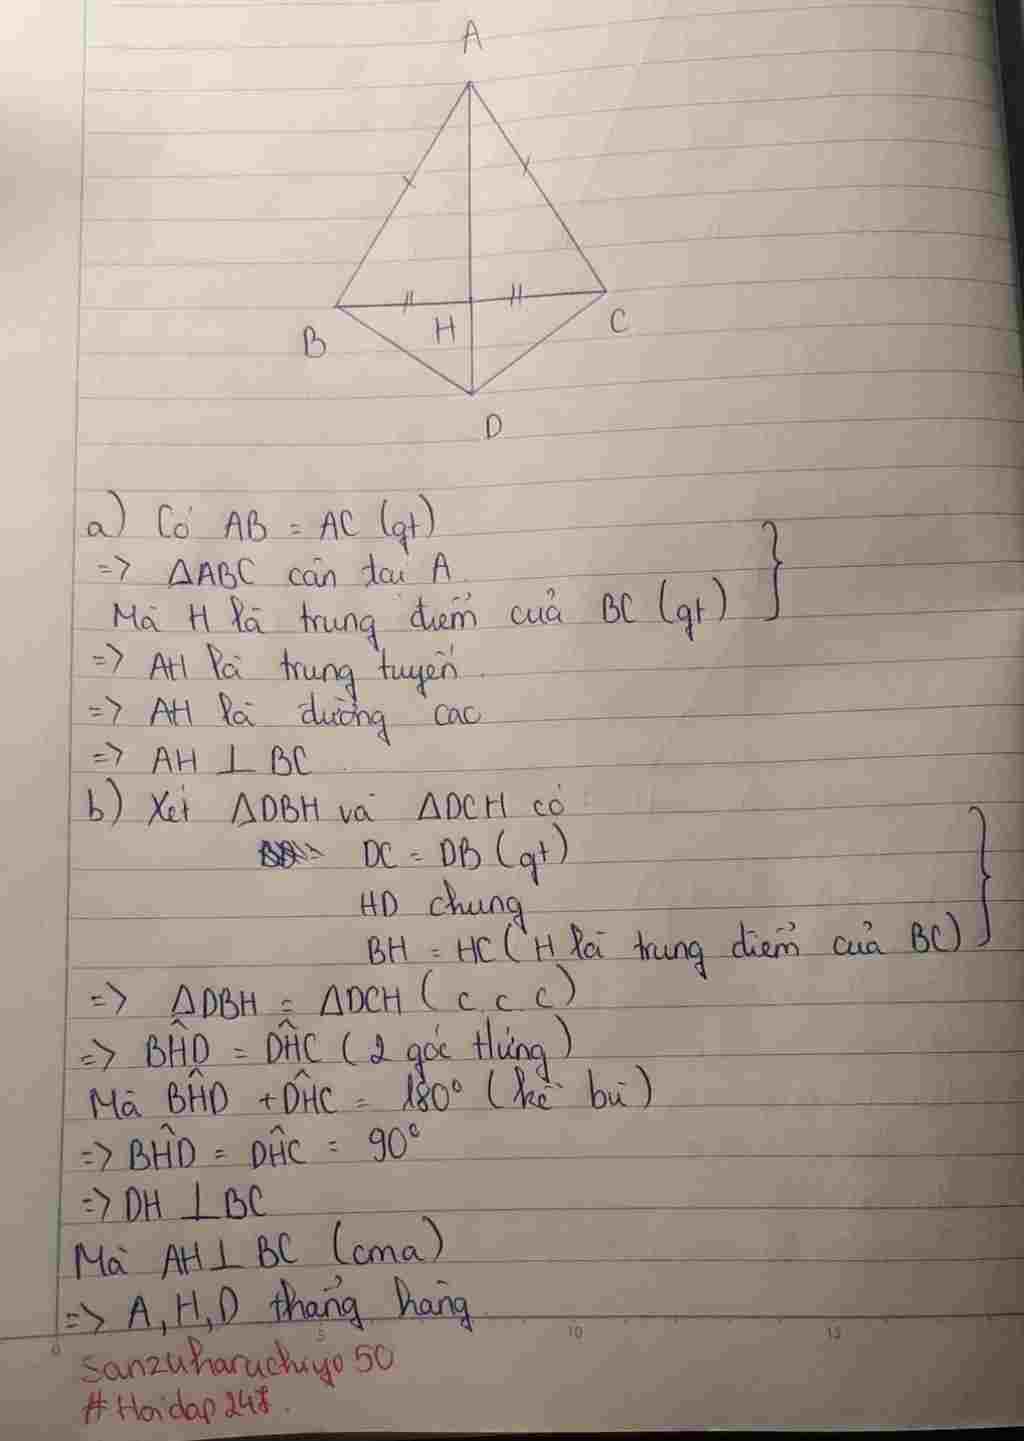 A
B
H
C
D
a) Có AB = AC (gt)
=> ΔABC cân tại A
Mà H là trung điểm của BC (gt)
=> AH là trung tuyến
=> AH là đường cao
=> AH ⊥ BC
b) Xét ΔDBH và ΔDCH có
DC = DB (gt)
HD chung
BH = HC (H là trung điểm của BC)
=> ΔDBH = ΔDCH (c.c.c)
=> BĤD = DĤC (2 góc tứng)
Mà BĤD + DĤC = 180° (kề bù)
=> BĤD = DĤC = 90°
=> DH ⊥ BC
Mà AH ⊥ BC (cma)
=> A, H, D thẳng hàng
0 5 10 15
Sanzuharuchiyo50
#Hoidap247.